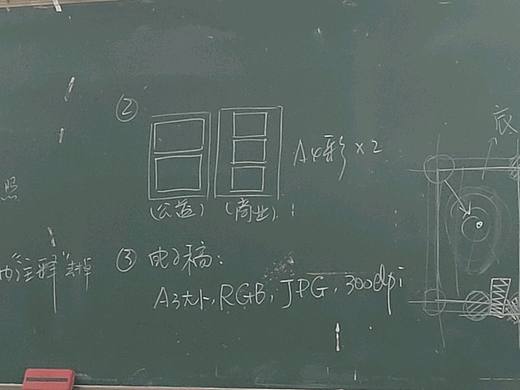 ②
A4彩×2
(公益) (商业)
照
的"注释"去掉
③ 电子稿:
A3大小, RGB, JPG, 300dpi
底